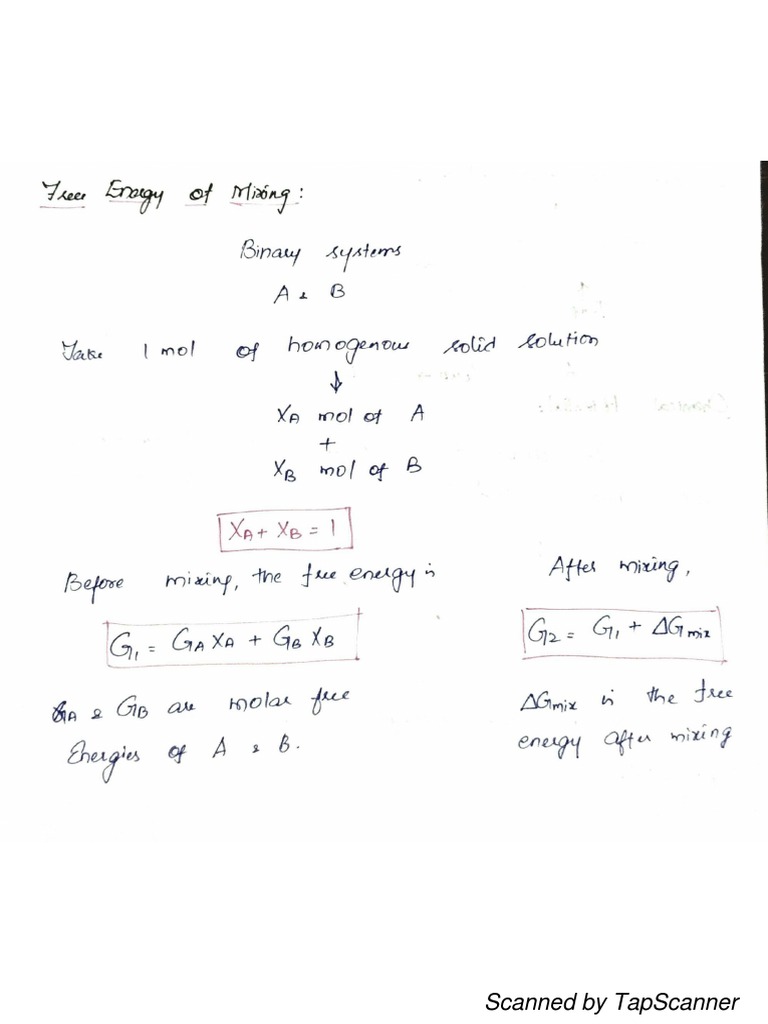 Free Energy of Mixing:
Binary systems
A & B
Take 1 mol of homogenous solid solution
↓
XA mol of A
+
XB mol of B
XA + XB = 1
Before mixing, the free energy is
G1 = GA XA + GB XB
GA & GB are molar free
Energies of A & B.
After mixing,
G2 = G1 + ΔGmix
ΔGmix is the free
energy after mixing
Scanned by TapScanner